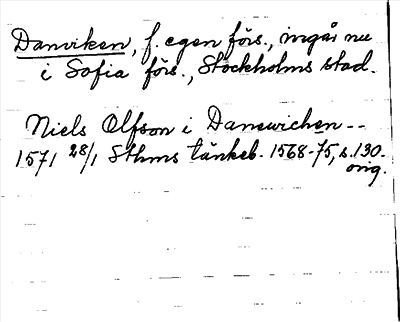 Danviken, f. egen förs., ingår nu
i Sofia förs., Stockholms stad.
Niels Olfson i Danewichen --
1571 28/1 Sthms tänkeb. 1568-75, s. 130.
orig.